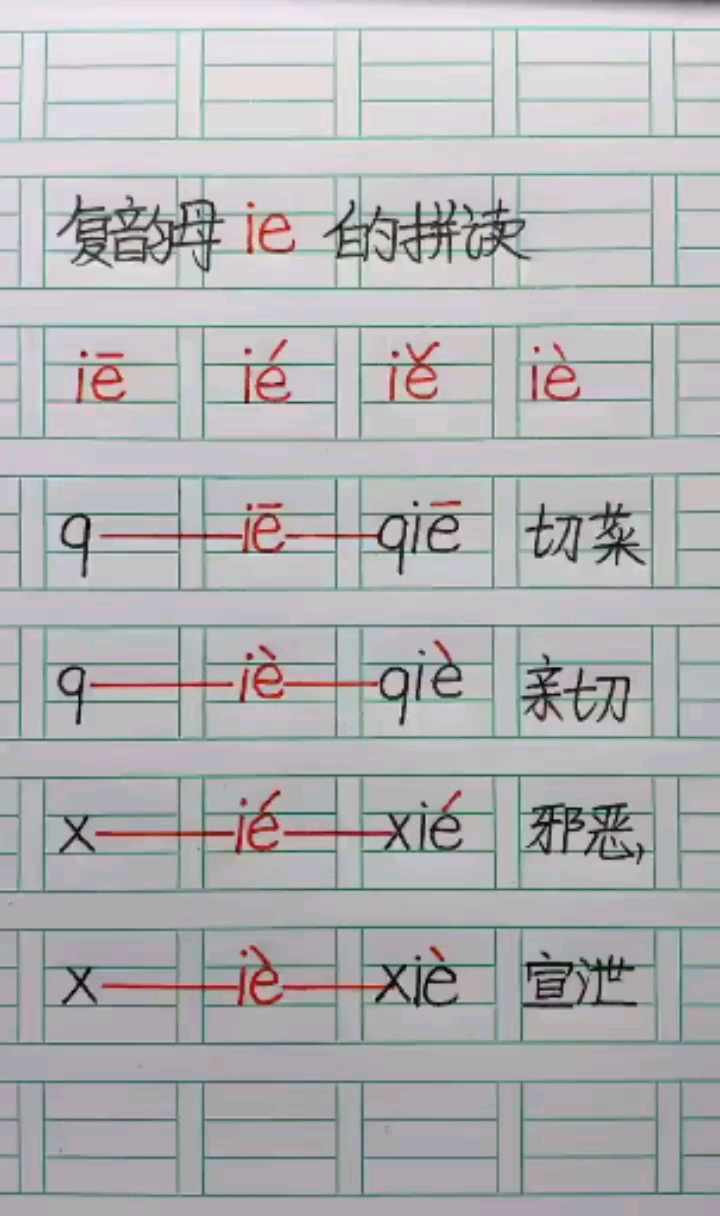 复韵母 ie 的拼读
iē ié iě iè
q—iē—qiē 切菜
q—iè—qiè 亲切
x—ié—xié 邪恶,
x—iè—xiè 宣泄